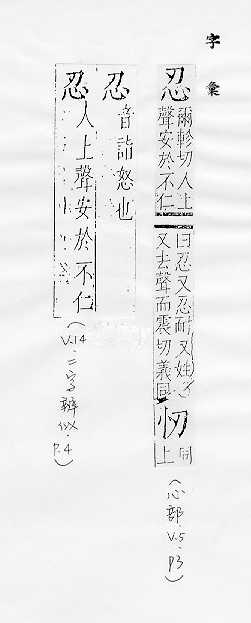 字彙
忍
爾軫切人上
聲安於不仁
曰忍又忍耐又姓
又去聲而震切義同
㣼
同
上
(心部.V.5.P3)
忍 音詣怒也
忍 人上聲安於不仁
(V.14.二字辨似.P.4)